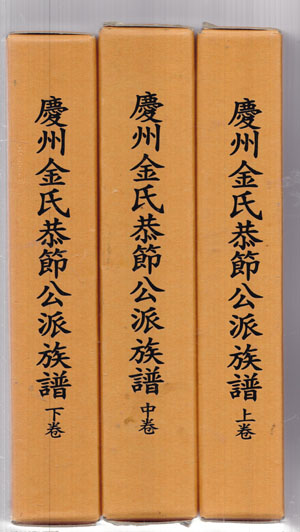 慶州金氏恭節公派族譜 上卷
慶州金氏恭節公派族譜 中卷
慶州金氏恭節公派族譜 下卷